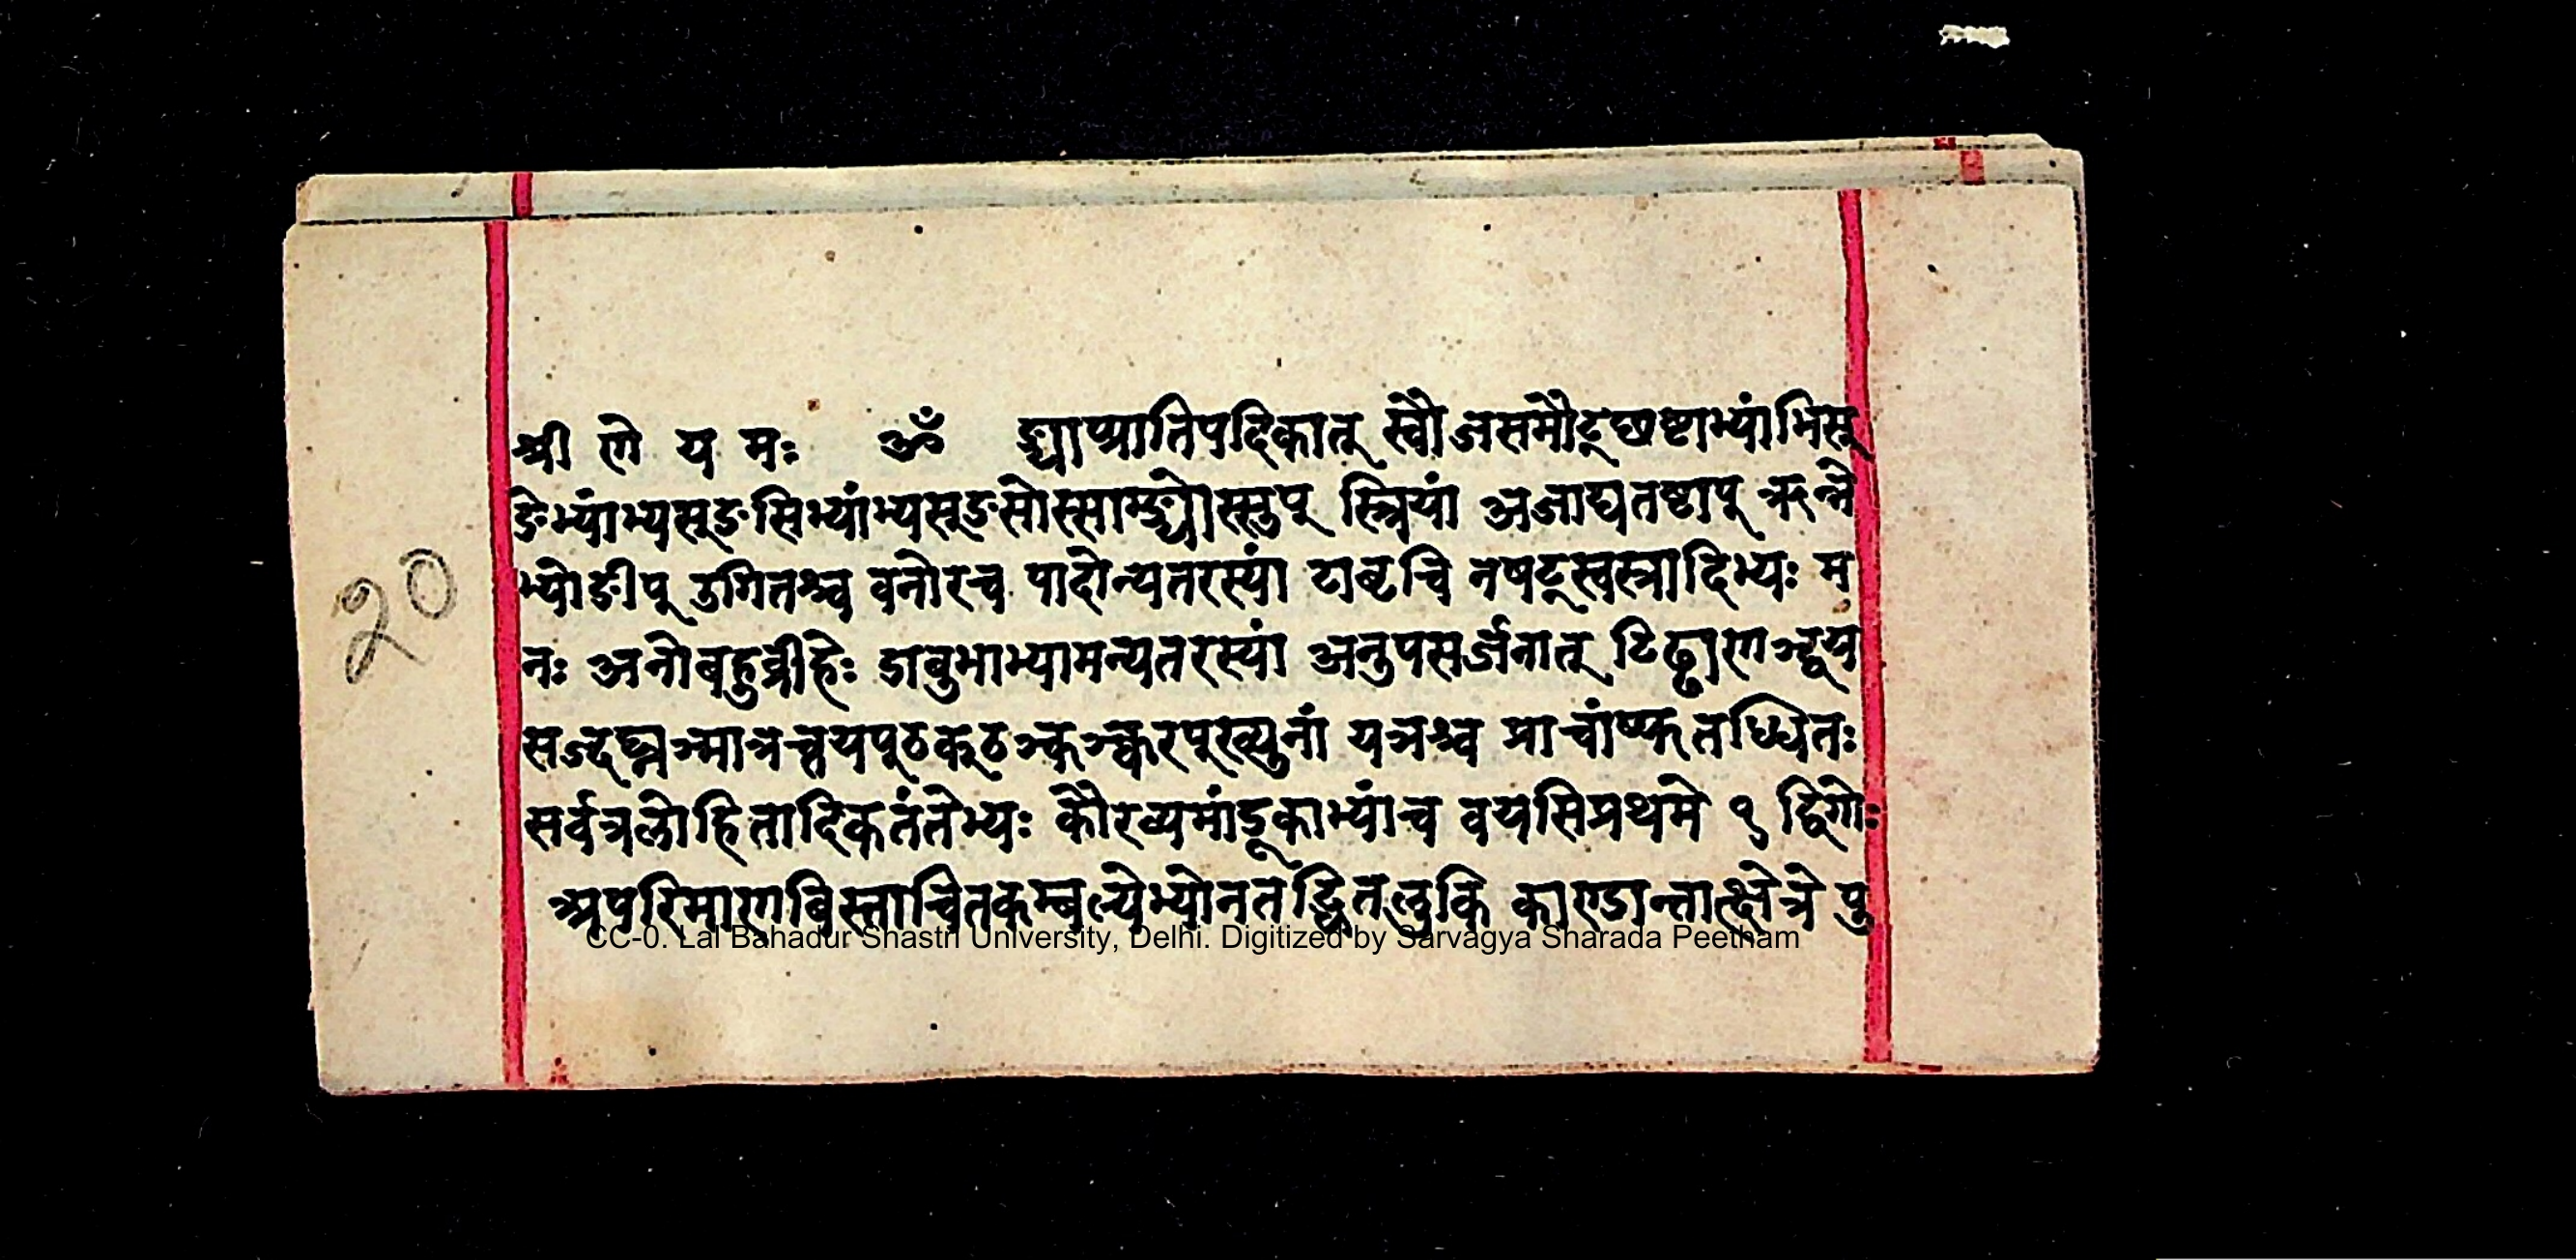 श्री णे य मः ॐ ङ्याप्प्रातिपदिकात् स्वौजसमौट्छष्टाभ्यांभिस्
ङेभ्यांभ्यस्ङसिभ्यांभ्यस्ङसोस्साम्ङ्योस्सुप् स्त्रियां अजाद्यतष्टाप् ऋन्ने
भ्योङीप् उगितश्च वनोरच पादोन्यतरस्यां टाबृचि नषट्स्वस्त्रादिभ्यः म
नः अनोबहुव्रीहेः डाबुभाभ्यामन्यतरस्यां अनुपसर्जनात् टिढ्ढाणञ्द्वय
सज्दघ्नञ्मात्रच्तयप्ठक्ठञ्कञ्क्वरप्ख्युनां यञश्च प्राचांष्फतध्धितः
सर्वत्रलोहितादिकतंतेभ्यः कौरव्यमांडूकाभ्यांच वयसिप्रथमे १ द्विगोः
अपरिमाणबिस्ताचितकम्बल्येभ्योनतद्धितलुकि काण्डान्तात्क्षेत्रे पु
20
CC-0. Lal Bahadur Shastri University, Delhi. Digitized by Sarvagya Sharada Peetham